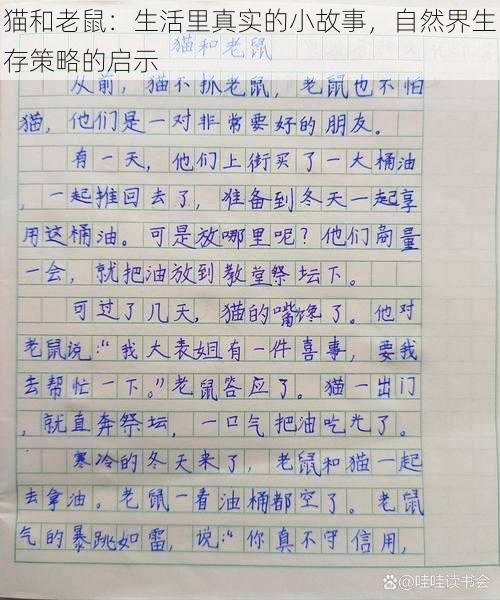 猫和老鼠：生活里真实的小故事，自然界生
存策略的启示
猫和老鼠
从前，猫不抓老鼠，老鼠也不怕
猫，他们是一对非常要好的朋友。
有一天，他们上街买了一大桶油
，一起推回去了，准备到冬天一起享
用这桶油。可是放哪里呢？他们商量
一会，就把油放到教堂祭坛下。
可过了几天，猫的嘴馋了。他对
老鼠说：“我大表姐有一件喜事，要我
去帮忙一下。”老鼠答应了。猫一出门
，就直奔祭坛，一口气把油吃光了。
寒冷的冬天来了，老鼠和猫一起
去拿油。老鼠一看油桶都空了。老鼠
气的暴跳如雷，说：“你真不守信用，
@哇哇读书会